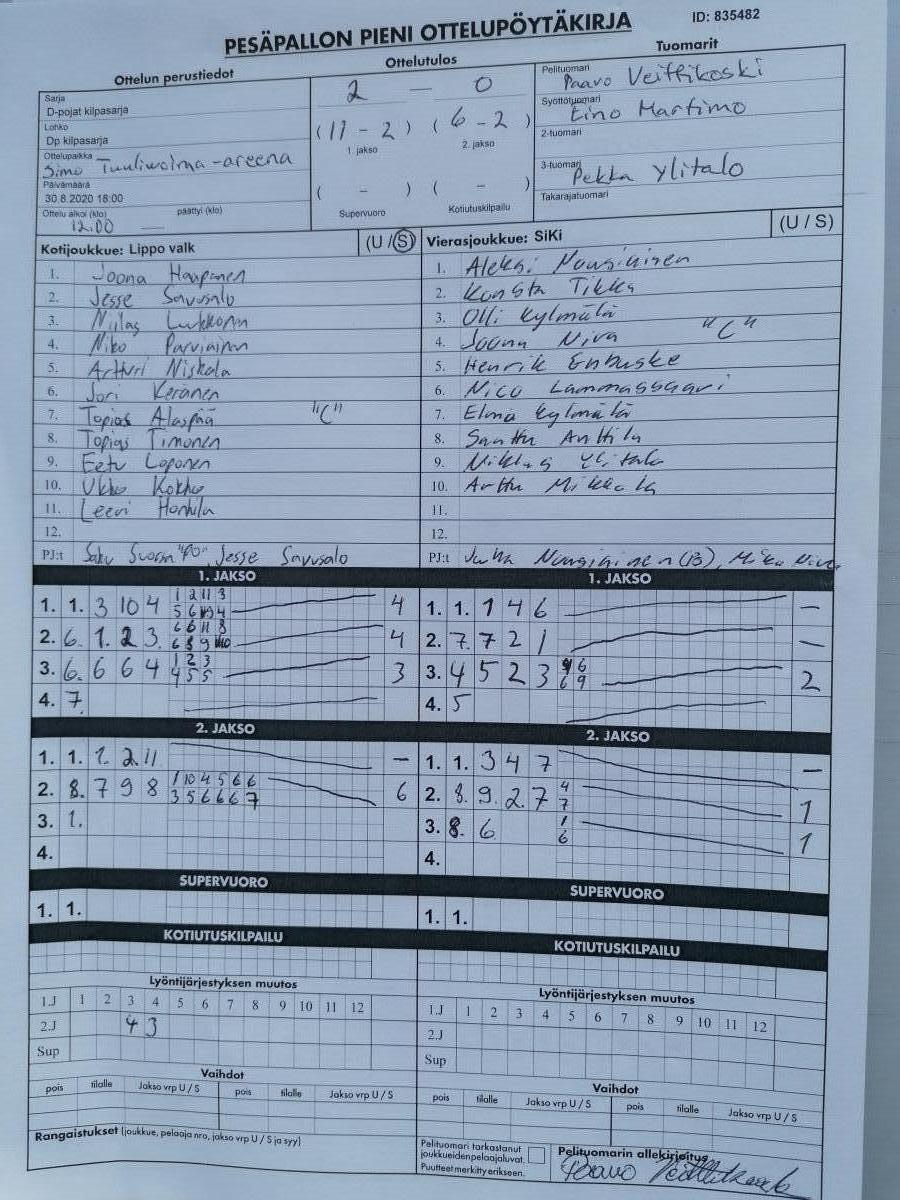 PESÄPALLON PIENI OTTELUPÖYTÄKIRJA
ID: 835482
Ottelun perustiedot
Sarja
D-pojat kilpasarja
Lohko
Dp kilpasarja
Ottelupaikka
Simo Tuuliwoima-areena
Päivämäärä
30.8.2020 18:00
Ottelu alkoi (klo) päättyi (klo)
12.00 —
Ottelutulos
2 — 0
(11 - 2) (6 - 2)
1. jakso 2. jakso
( - ) ( - )
Supervuoro Kotiutuskilpailu
Tuomarit
Pelituomari
Paavo Veittikoski
Syöttötuomari
Eino Martimo
2-tuomari
3-tuomari
Pekka Ylitalo
Takarajatuomari
Kotijoukkue: Lippo valk (U / S)
1. Joona Haapanen
2. Jesse Savusalo
3. Niilas Lukkorin
4. Niko Parviainen
5. Artturi Niskala
6. Jori Keränen
7. Topias Alaspää "C"
8. Topias Timonen
9. Eetu Loponen
10. Ukko Kokko
11. Leevi Hontila
12.
PJ:t Saku Suorsa "PO", Jesse Savusalo
Vierasjoukkue: SiKi (U / S)
1. Aleksi Nousiainen
2. Konsta Tikka
3. Olli Kylmälä
4. Joona Niva "C"
5. Henrik Enbuske
6. Nico Lammassaari
7. Elmo Kylmälä
8. Santtu Anttila
9. Niklas Ylitalo
10. Arttu Mikkola
11.
12.
PJ:t Juha Nousiainen (B), Mika Niva
1. JAKSO
1. 1. 3 10 4 1 2 11 3 4
5 6 10 4
2. 6. 1. 2 3. 6 6 11 8 4
6 8 9 10
3. 6. 6 6 4 1 2 3 3
4 5 5
4. 7.
1. JAKSO
1. 1. 1 4 6 —
2. 7. 7 2 1 —
3. 4 5 2 3 6 2
6 9
4. 5
2. JAKSO
1. 1. 1. 2 11 —
2. 8. 7 9 8 1 10 4 5 6 6 6
3 5 6 6 6 7
3. 1.
4.
2. JAKSO
1. 1. 3 4 7 —
2. 8. 9. 2. 7 4 1
7
3. 8. 6 1 1
6
4.
SUPERVUORO
1. 1.
SUPERVUORO
1. 1.
KOTIUTUSKILPAILU
KOTIUTUSKILPAILU
Lyöntijärjestyksen muutos
1.J 1 2 3 4 5 6 7 8 9 10 11 12
2.J 4 3
Sup
Lyöntijärjestyksen muutos
1.J 1 2 3 4 5 6 7 8 9 10 11 12
2.J
Sup
Vaihdot
pois tilalle Jakso vrp U / S pois tilalle Jakso vrp U / S
Vaihdot
pois tilalle Jakso vrp U / S pois tilalle Jakso vrp U / S
Rangaistukset (joukkue, pelaaja nro, jakso vrp U / S ja syy)
Pelituomari tarkastanut
joukkueidenpelaajaluvat.
Puutteet merkitty erikseen.
Pelituomarin allekirjoitus
Paavo Veittikoski